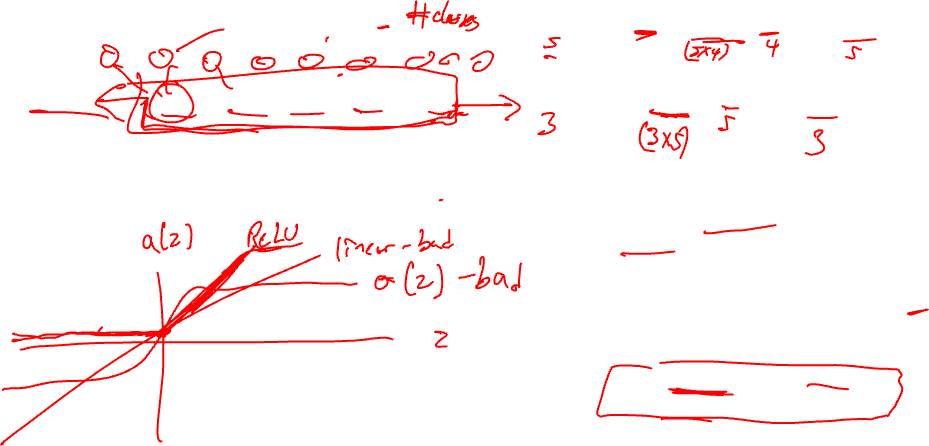 #classes
5 (5×4) 4 5
3 (3×5) 5 3
a(z) ReLU
linear-bad
σ(z)-bad
z